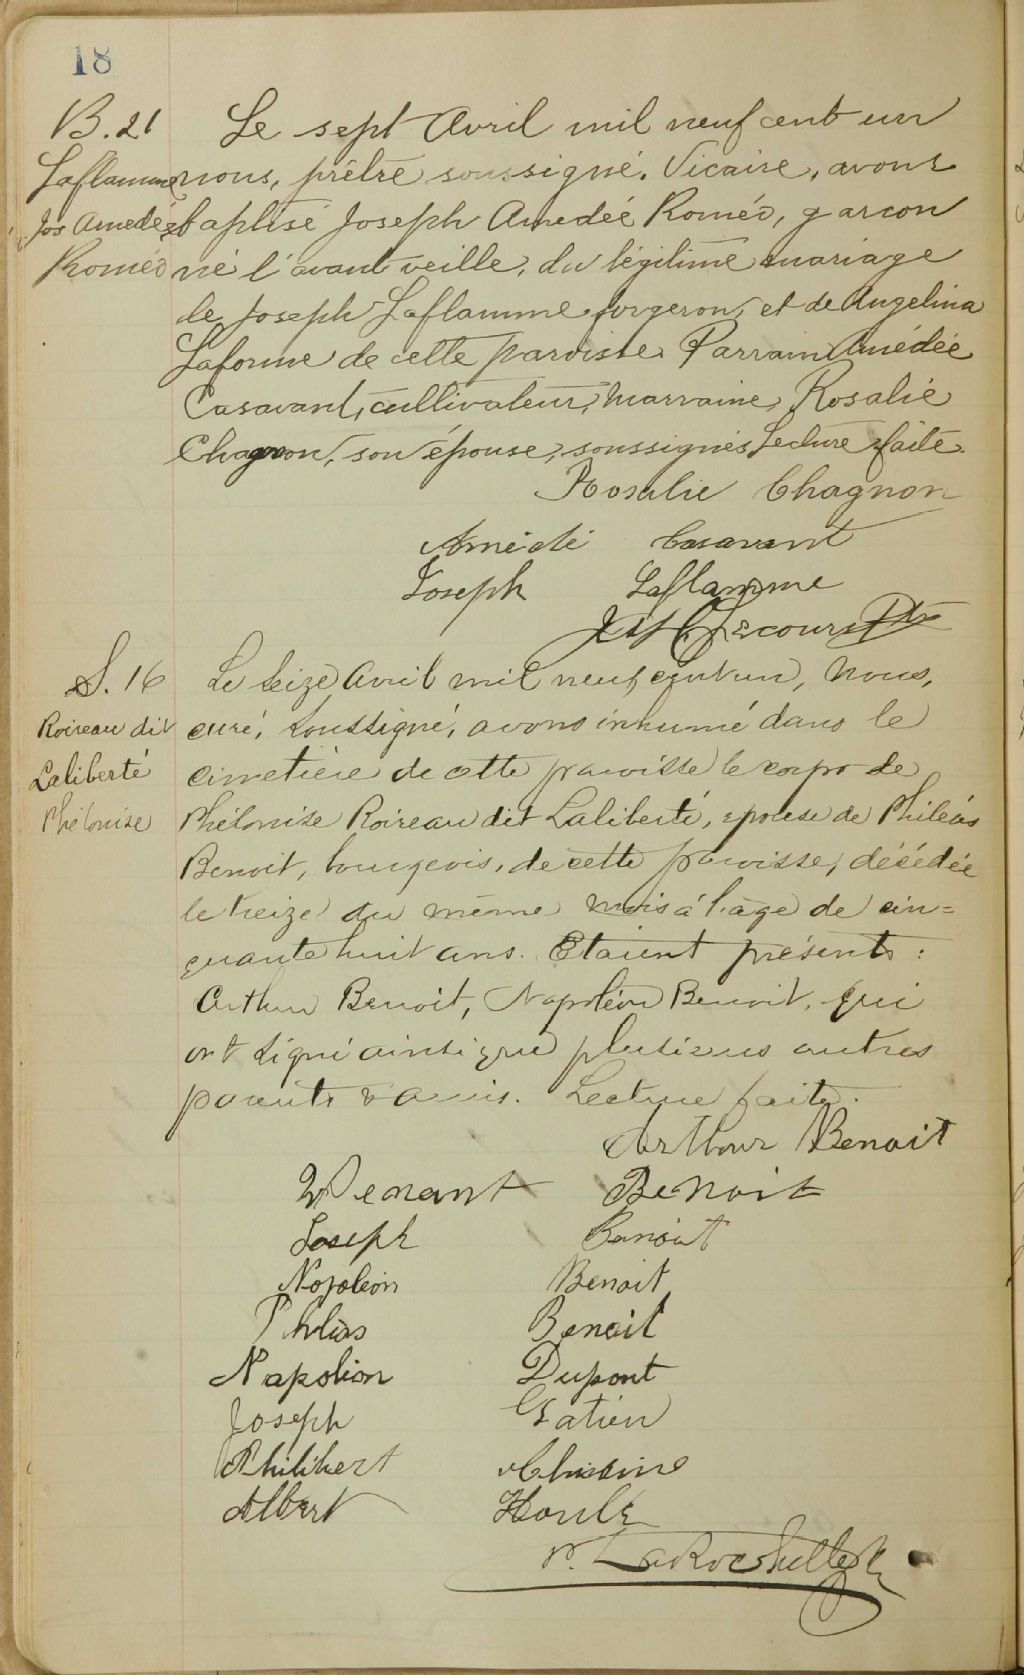 18
B. 21
Laflamme
Jos Amedée
Roméo
Le sept Avril mil neuf cent un
nous, prêtre soussigné, Vicaire, avons
baptisé Joseph Amedée Roméo, garcon
né l'avant veille, du légitime mariage
de Joseph Laflamme forgeron, et de Angelina
Laforme de cette paroisse. Parrain Amédée
Casavant, cultivateur, marraine, Rosalie
Chagnon, son épouse, soussignés Lecture faite.
Rosalie Chagnon
Amédé Casavant
Joseph Laflamme
Lecours Ptre
S. 16
Roireau dit
Laliberté
Phélonise
Le seize Avril mil neuf cent un, nous,
curé, soussigné, avons inhumé dans le
cimetière de cette paroisse le corps de
Phélonise Roireau dit Laliberté, epouse de Philéas
Benoit, bourgeois, de cette paroisse, décédée
le treize du même mois à l'age de cin=
quante huit ans. Etaient présents :
Arthur Benoit, Napoléon Benoit, qui
ont signé ainsi que plusieurs autres
parents & amis. Lecture faite.
Arthur Benoit
Venant Benoit
Joseph Benoit
Napoléon Benoit
Philias Benoit
Napolion Dupont
Joseph Gatien
Philibert
Albert Houle
P. LaRochelle